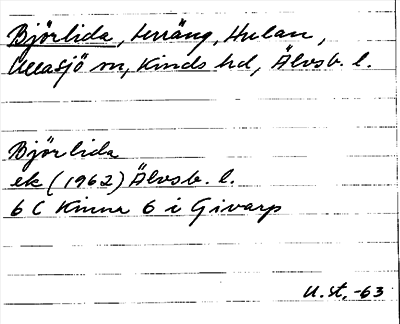 Björlida, terräng, Hulan,
Ullasjö sn, Kinds hd, Älvsb. l.
Björlida
ek (1962) Älvsb. l.
6 C Kinna 6 i Givarp
U. st, -63